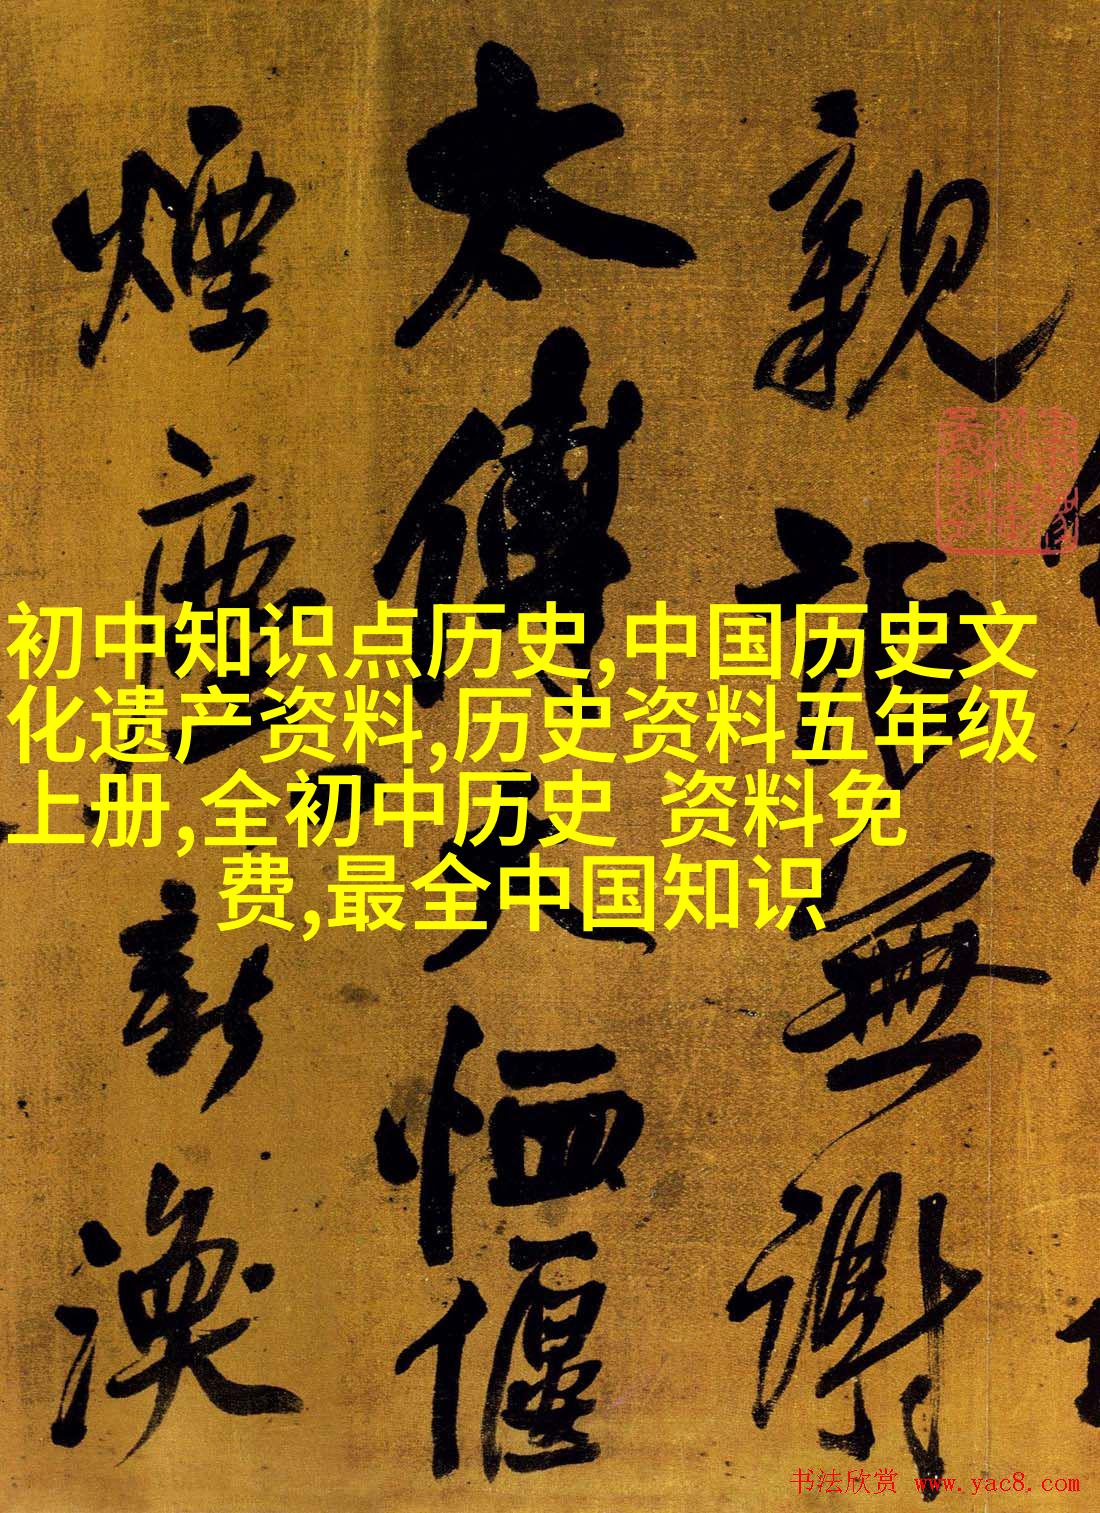 親
無謝
太傅
恤偃
煙塵
新渙
初中知识点历史,中国历史文
化遗产资料,历史资料五年级
上册,全初中历史 资料免
费,最全中国知识
书法欣赏 www.yac8.com